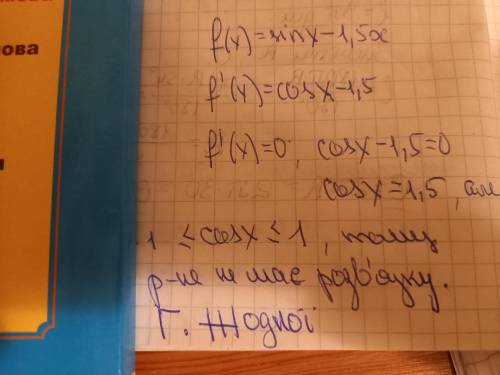 нова
f(x)=sinx-1,5x
f'(x)=cosx-1,5
f'(x)=0, cosx-1,5=0
cosx=1,5, але
1 ≤cosx≤1, тому
р-не не має розв'язку.
Г. Жодної